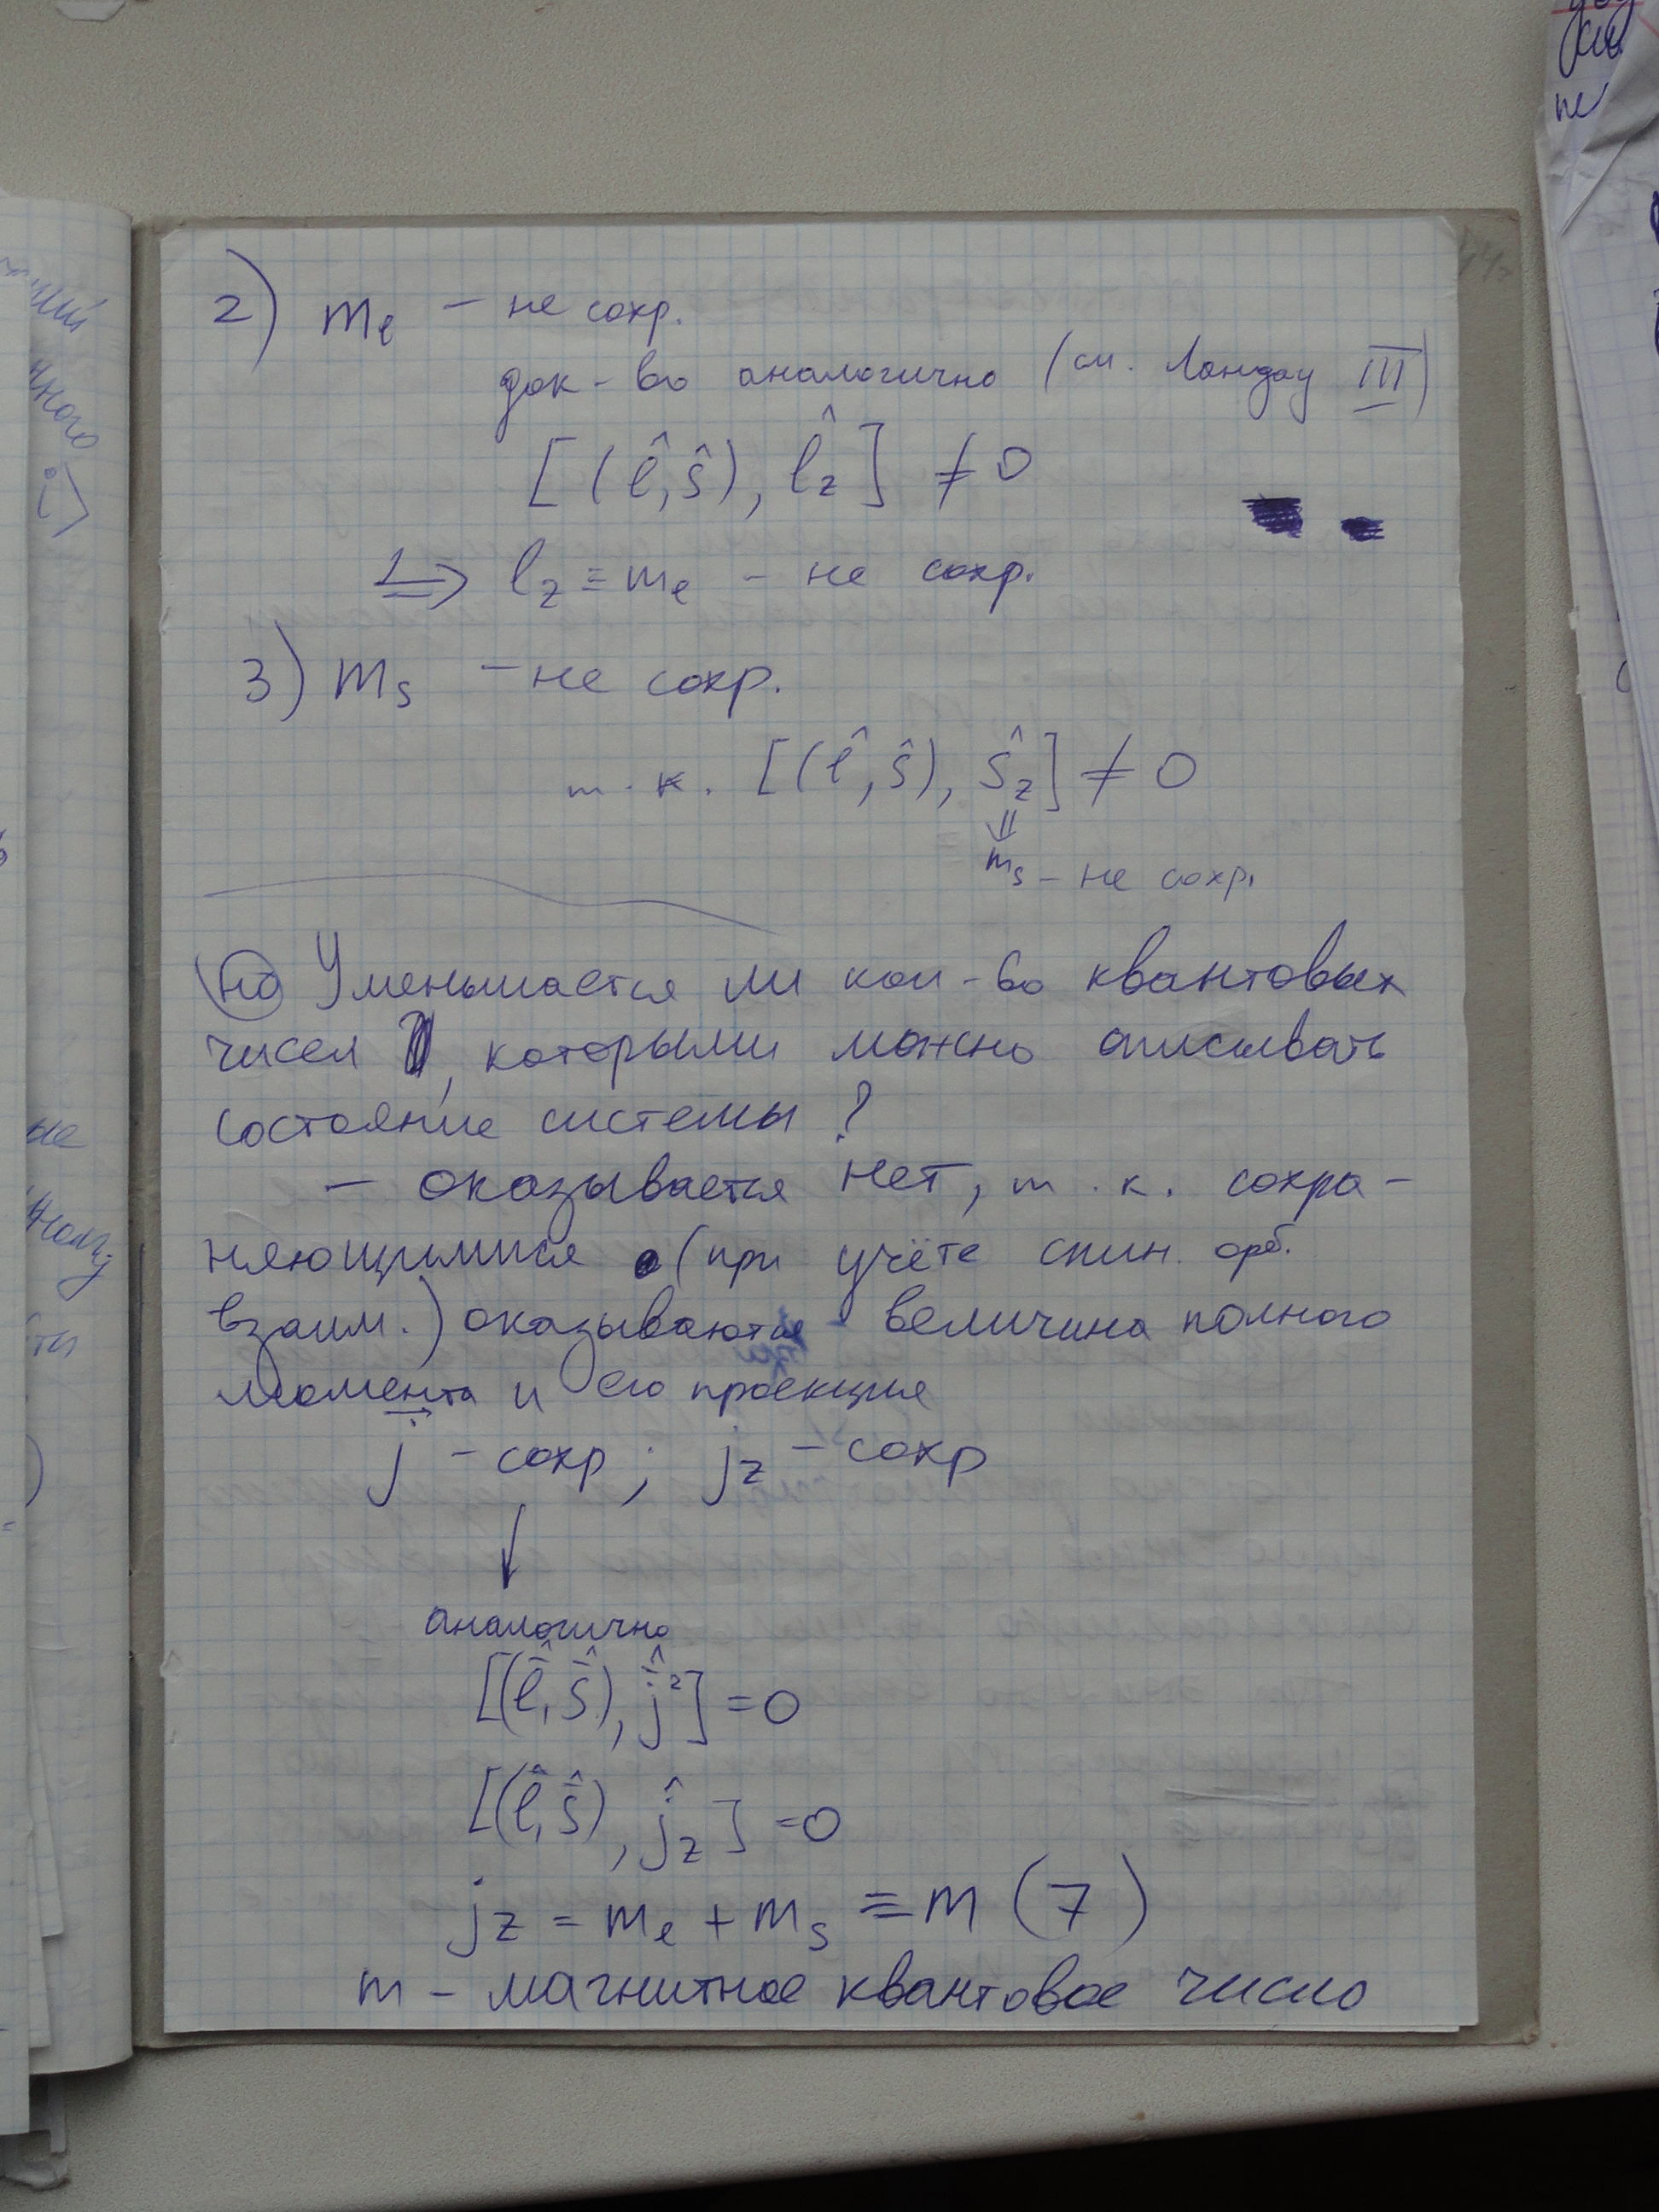 2) mₑ – не сохр.
док-во аналогично (см. Ландау III)
[(l̂,ŝ), l̂_z] ≠ 0
⇒ l_z ≡ m_l – не сохр.
3) m_s – не сохр.
т.к. [(l̂,ŝ), ŝ_z] ≠ 0
⇓
m_s – не сохр.
но Уменьшается ли кол-во квантовых
чисел, которыми можно описывать
состояние системы?
– оказывается нет, т.к. сохра-
няющимися (при учёте спин. орб.
взаим.) оказываются величина полного
момента и его проекция
j⃗ – сохр; j_z – сохр
↓
аналогично
[(l̂,ŝ), ĵ²] = 0
[(l̂,ŝ), ĵ_z] = 0
j_z = m_l + m_s ≡ m (7)
m – магнитное квантовое число